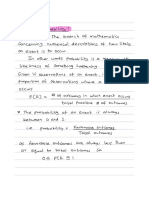 Probability?
The branch of mathematics
concerning numerical descriptions of how likely
an event is to occur
In other words probability is a measure of
likeliness of something happening.
Given N observations of an event, it is the
proportion of observations where
occurs
P(E) = # of outcomes in which event occurs
total possible # of outcomes
* The probability of an event is always
between 0 and 1.
i.e. probability = Favourable outcomes
Total outcomes
as favourable outcomes are always less than
or equal to total outcomes so
0 ≤ P(E) ≤ 1